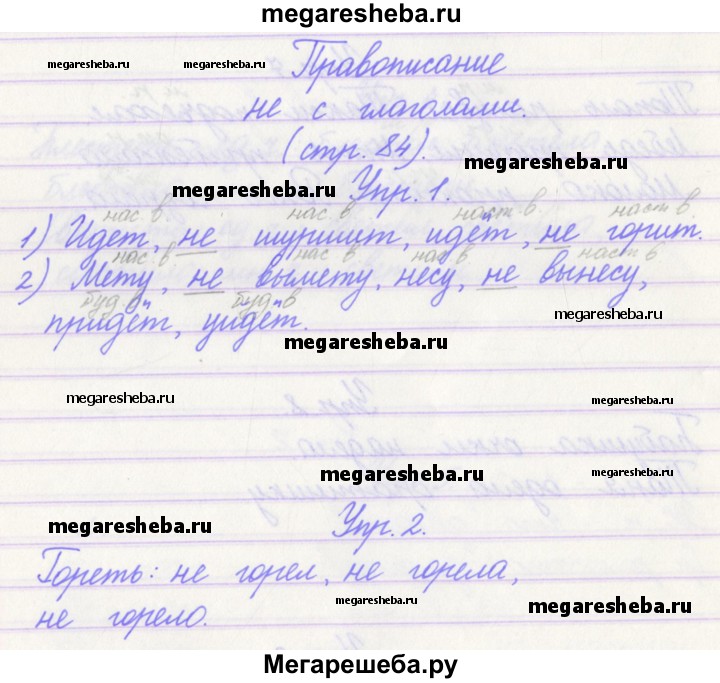 megaresheba.ru
megaresheba.ru megaresheba.ru Правописание
не с глаголами.
(стр. 84). megaresheba.ru
megaresheba.ru Упр. 1.
нас. в. нас. в. наст. в. наст. в.
1) Идет, не шуршит, идёт, не горит.
нас. в. нас. в. нас. в. наст. в.
2) Мету, не вымету, несу, не вынесу,
буд. в. буд. в.
придёт, уйдёт. megaresheba.ru
megaresheba.ru
megaresheba.ru megaresheba.ru
megaresheba.ru megaresheba.ru
megaresheba.ru Упр. 2.
Гореть: не горел, не горела,
не горело. megaresheba.ru megaresheba.ru
Мегарешеба.ру